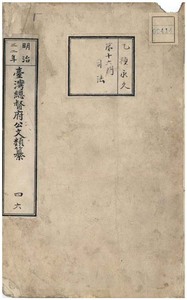 乙種永久
第十六門
司法
明治
三二年
臺灣總督府公文類纂
四六